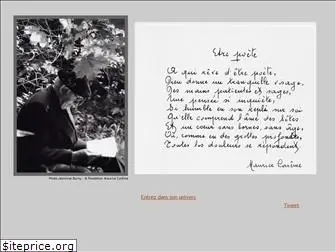 Etre poète
A qui rêve d'être poète,
Dieu donne un tranquille visage,
Des mains patientes et sages,
Une pensée si inquiète,
Si humble en son repli sur soi
Qu'elle comprend l'âme des bêtes
Et un cœur sans bornes, sans âge,
Où, comme en des grottes profondes,
Toutes les douleurs se répondent.
Maurice Carême
Photo Jeannine Burny - © Fondation Maurice Carême
Entrez dans son univers
Tweet